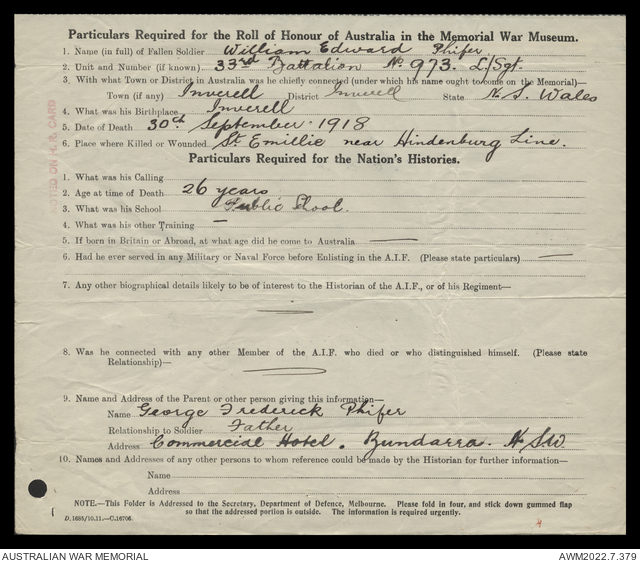 Particulars Required for the Roll of Honour of Australia in the Memorial War Museum.
1. Name (in full) of Fallen Soldier William Edward Phifer
2. Unit and Number (if known) 33rd Battalion No. 973. L/Sgt.
3. With what Town or District in Australia was he chiefly connected (under which his name ought to come on the Memorial)—
Town (if any) Inverell District Inverell State N. S. Wales
4. What was his Birthplace Inverell
5. Date of Death 30th September 1918
6. Place where Killed or Wounded St. Emillie near Hindenburg Line.
Particulars Required for the Nation's Histories.
1. What was his Calling
2. Age at time of Death 26 years
3. What was his School Public School.
4. What was his other Training —
5. If born in Britain or Abroad, at what age did he come to Australia —
6. Had he ever served in any Military or Naval Force before Enlisting in the A.I.F. (Please state particulars) —
7. Any other biographical details likely to be of interest to the Historian of the A.I.F., or of his Regiment—
—
8. Was he connected with any other Member of the A.I.F. who died or who distinguished himself. (Please state
Relationship)—
—
9. Name and Address of the Parent or other person giving this information—
Name George Frederick Phifer
Relationship to Soldier Father
Address Commercial Hotel. Bundarra. N SW.
10. Names and Addresses of any other persons to whom reference could be made by the Historian for further information—
Name
Address
NOTE.—This Folder is Addressed to the Secretary, Department of Defence, Melbourne. Please fold in four, and stick down gummed flap
so that the addressed portion is outside. The information is required urgently.
D.1685/10.11.—C.16706.
ON H.R. CARD
AUSTRALIAN WAR MEMORIAL
AWM2022.7.379